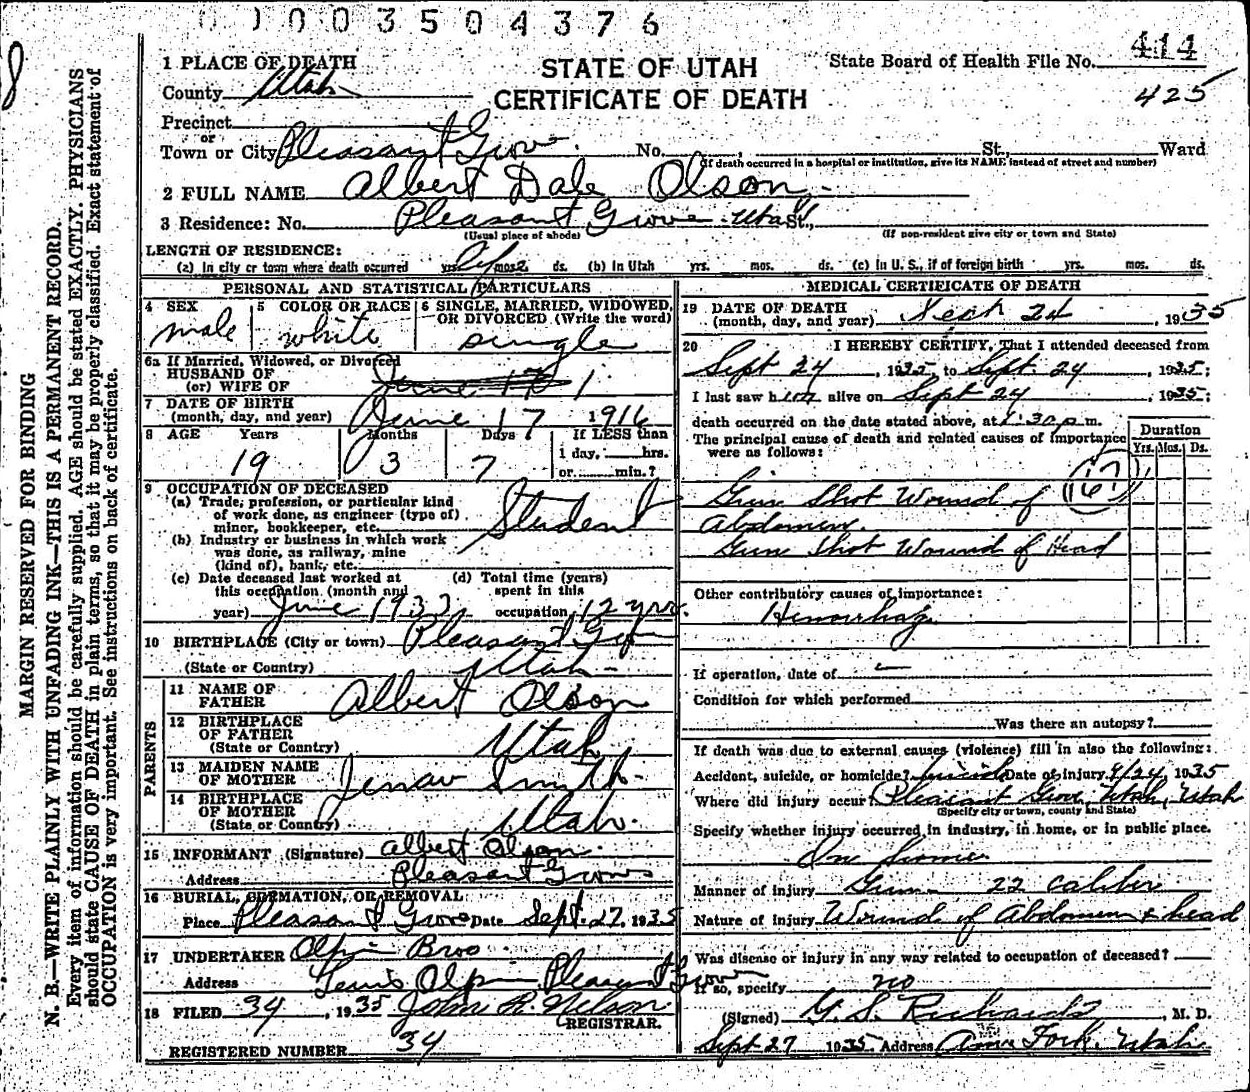 0 0 0 0 3 5 0 4 3 7 6
414
425
1 PLACE OF DEATH
County Utah
STATE OF UTAH
CERTIFICATE OF DEATH
State Board of Health File No.
Precinct
or
Town or City Pleasant Grove. No. , St., Ward
(If death occurred in a hospital or institution, give its NAME instead of street and number)
2 FULL NAME Albert Dale Olson
3 Residence: No. Pleasant Grove Utah St.,
(Usual place of abode) (If non-resident give city or town and State)
LENGTH OF RESIDENCE:
(a) In city or town where death occurred yrs. mos. ds. (b) In Utah yrs. mos. ds. (c) In U. S., if of foreign birth yrs. mos. ds.
PERSONAL AND STATISTICAL PARTICULARS
4 SEX 5 COLOR OR RACE 6 SINGLE, MARRIED, WIDOWED, OR DIVORCED (Write the word)
male white single
6a If Married, Widowed, or Divorced
HUSBAND OF
(or) WIFE OF June 17
7 DATE OF BIRTH
(month, day, and year) June 17 1916
8 AGE Years Months Days If LESS than
1 day, hrs.
or min.?
19 3 7
9 OCCUPATION OF DECEASED
(a) Trade, profession, or particular kind
of work done, as engineer (type of)
minor, bookkeeper, etc. Student
(b) Industry or business in which work
was done, as railway, mine
(kind of), bank, etc.
(c) Date deceased last worked at
this occupation (month and
year) June 1933
(d) Total time (years)
spent in this
occupation 12 yrs.
10 BIRTHPLACE (City or town) Pleasant Grove
(State or Country) Utah
PARENTS
11 NAME OF
FATHER Albert Olson
12 BIRTHPLACE
OF FATHER
(State or Country) Utah
13 MAIDEN NAME
OF MOTHER Smith
14 BIRTHPLACE
OF MOTHER
(State or Country) Utah.
15 INFORMANT (Signature) Albert Olson.
Address Pleasant Grove
16 BURIAL, CREMATION, OR REMOVAL
Place Pleasant Grove Date Sept. 27, 1935
17 UNDERTAKER Olpin Bros
Address Lewis Olpin Pleasant Grove
18 FILED 34, 1935 John R. Nelson
REGISTRAR.
REGISTERED NUMBER 34
MEDICAL CERTIFICATE OF DEATH
19 DATE OF DEATH
(month, day, and year) Sept 24, 1935
20 I HEREBY CERTIFY, That I attended deceased from
Sept 24, 1935, to Sept. 24, 1935;
I last saw him alive on Sept 24, 1935;
death occurred on the date stated above, at 1:30 p.m.
The principal cause of death and related causes of importance
were as follows:
Duration
Yrs. Mos. Ds.
167
Gun Shot Wound of
Abdomen.
Gun Shot Wound of Head
Other contributory causes of importance:
Hemorrhage
If operation, date of
Condition for which performed
Was there an autopsy?
If death was due to external causes (violence) fill in also the following:
Accident, suicide, or homicide? Suicide Date of injury 9/24, 1935
Where did injury occur? Pleasant Grove, Utah, Utah
(Specify city or town, county and State)
Specify whether injury occurred in industry, in home, or in public place.
In home
Manner of injury Gun 22 caliber
Nature of injury Wound of Abdomen & head
Was disease or injury in any way related to occupation of deceased?
If so, specify no
(Signed) G. S. Richards, M. D.
Sept 27 1935 Address Amer Fork, Utah
MARGIN RESERVED FOR BINDING
N. B.—WRITE PLAINLY WITH UNFADING INK—THIS IS A PERMANENT RECORD.
Every item of information should be carefully supplied. AGE should be stated EXACTLY. PHYSICIANS
should state CAUSE OF DEATH in plain terms, so that it may be properly classified. Exact statement of
OCCUPATION is very important. See instructions on back of certificate.